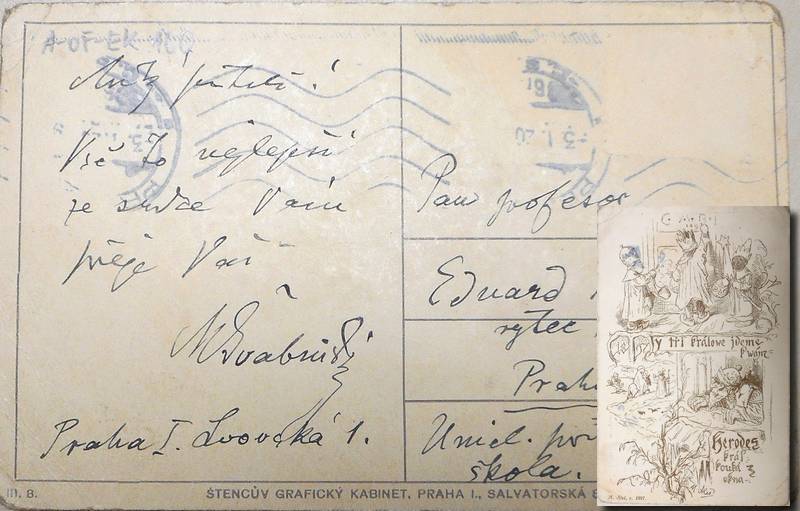 Milý příteli!
Vše to nejlepší
ze srdce Vám
přeje Váš
MŠvabinský
Praha I. 1.
Pan profesor
Eduard
rytec
Prah
Uměl. prů
škola.
III. 8.
ŠTENCŮV GRAFICKÝ KABINET, PRAHA I., SALVATORSKÁ 8
-3.I.20
C. M. B.
My tři králowe jdeme
k wám
Herodes
král
kouká
z
okna